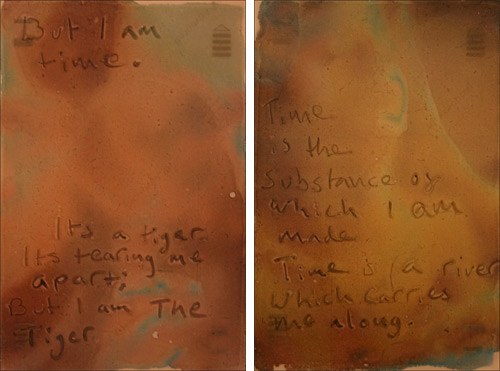 But I am
time.
Its a tiger
Its tearing me
apart;
But I am The
Tiger
Time
is the
Substance of
which I am
made.
Time is a river
which carries
me along.